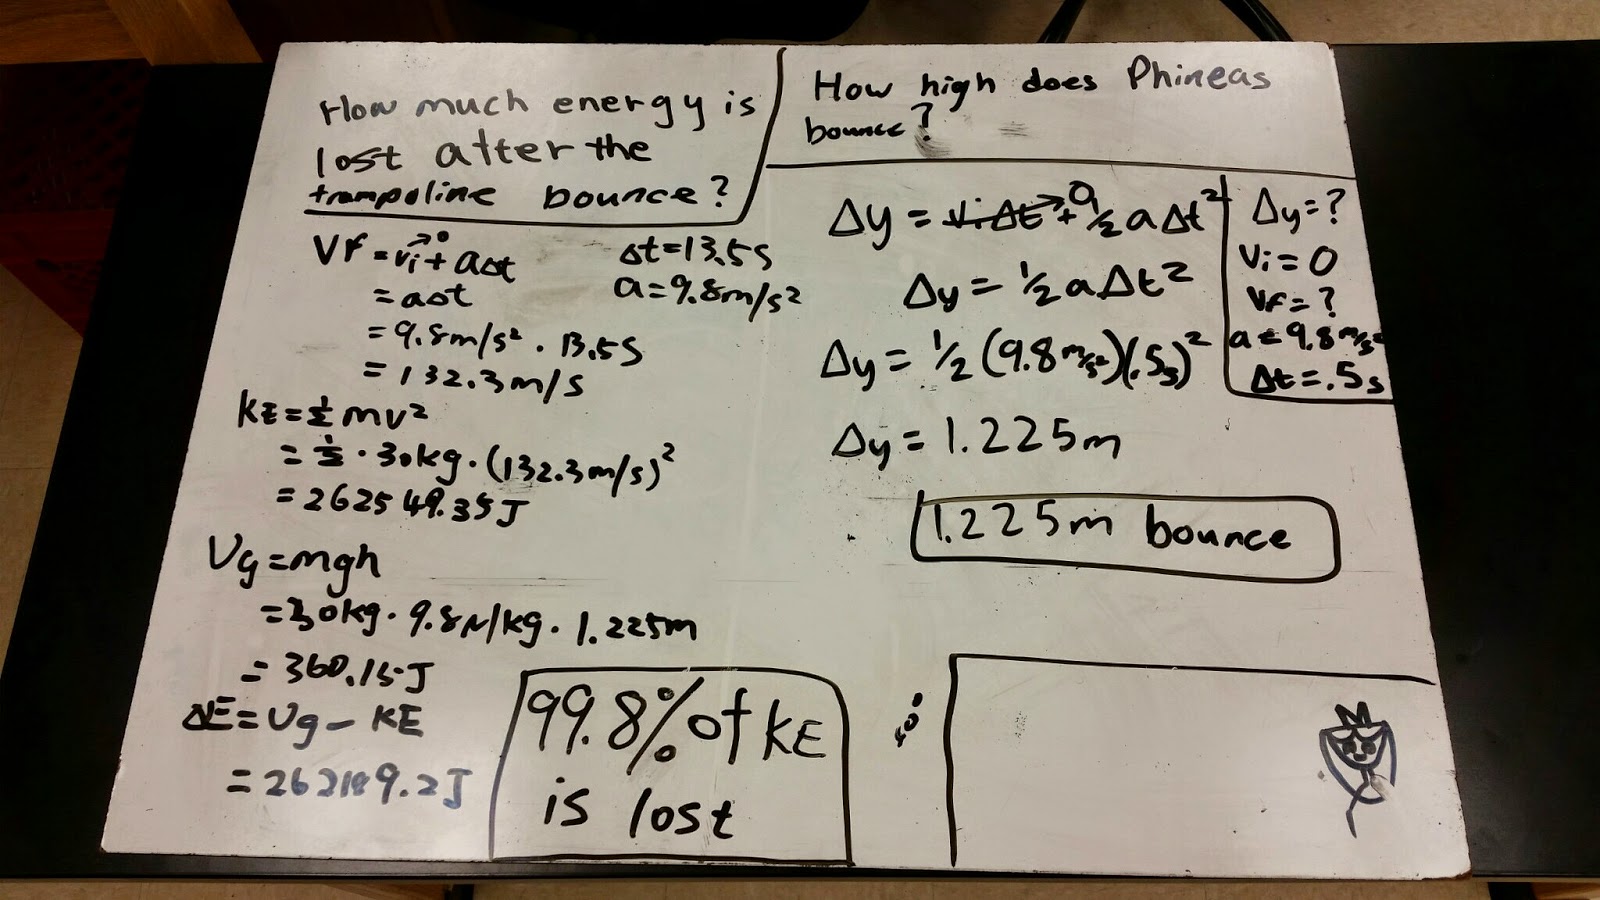 How much energy is
lost after the
trampoline bounce?
Vf = vi→0 + aΔt
= aΔt
= 9.8m/s² · 13.5s
= 132.3m/s
Δt=13.5s
a=9.8m/s²
KE = ½ mv²
= ½ · 30kg · (132.3m/s)²
= 262549.35J
Ug = mgh
= 30kg · 9.8N/kg · 1.225m
= 360.15J
ΔE = Ug - KE
= 262189.2J
99.8% of KE
is lost
How high does Phineas
bounce?
Δy = viΔt→0 + ½ aΔt²
Δy = ½ aΔt²
Δy = ½ (9.8m/s²)(.5s)²
Δy = 1.225m
1.225m bounce
Δy=?
Vi=0
Vf=?
a=9.8m/s²
Δt=.5s